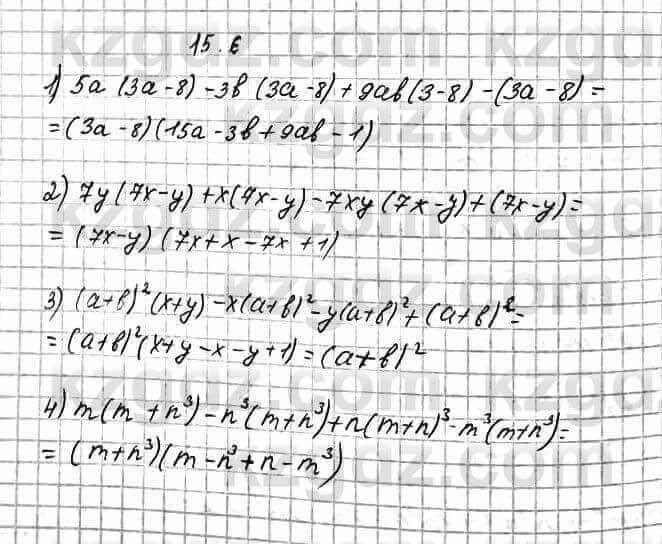 15.6
1) 5a (3a-8) - 3b (3a-8) + 9ab (3-8) - (3a-8) =
= (3a-8)(15a-3b+9ab-1)
2) 7y (7x-y) + x(7x-y) - 7xy (7x-y) + (7x-y) =
= (7x-y) (7x+x-7x+1)
3) (a+b)²(x+y) - x(a+b)² - y(a+b)² + (a+b)² =
= (a+b)²(x+y-x-y+1) = (a+b)²
4) m(m+n³) - n³(m+n³) + n(m+n)³ - m³(m+n³) =
= (m+n³)(m-n³+n-m³)
kzgdz.com